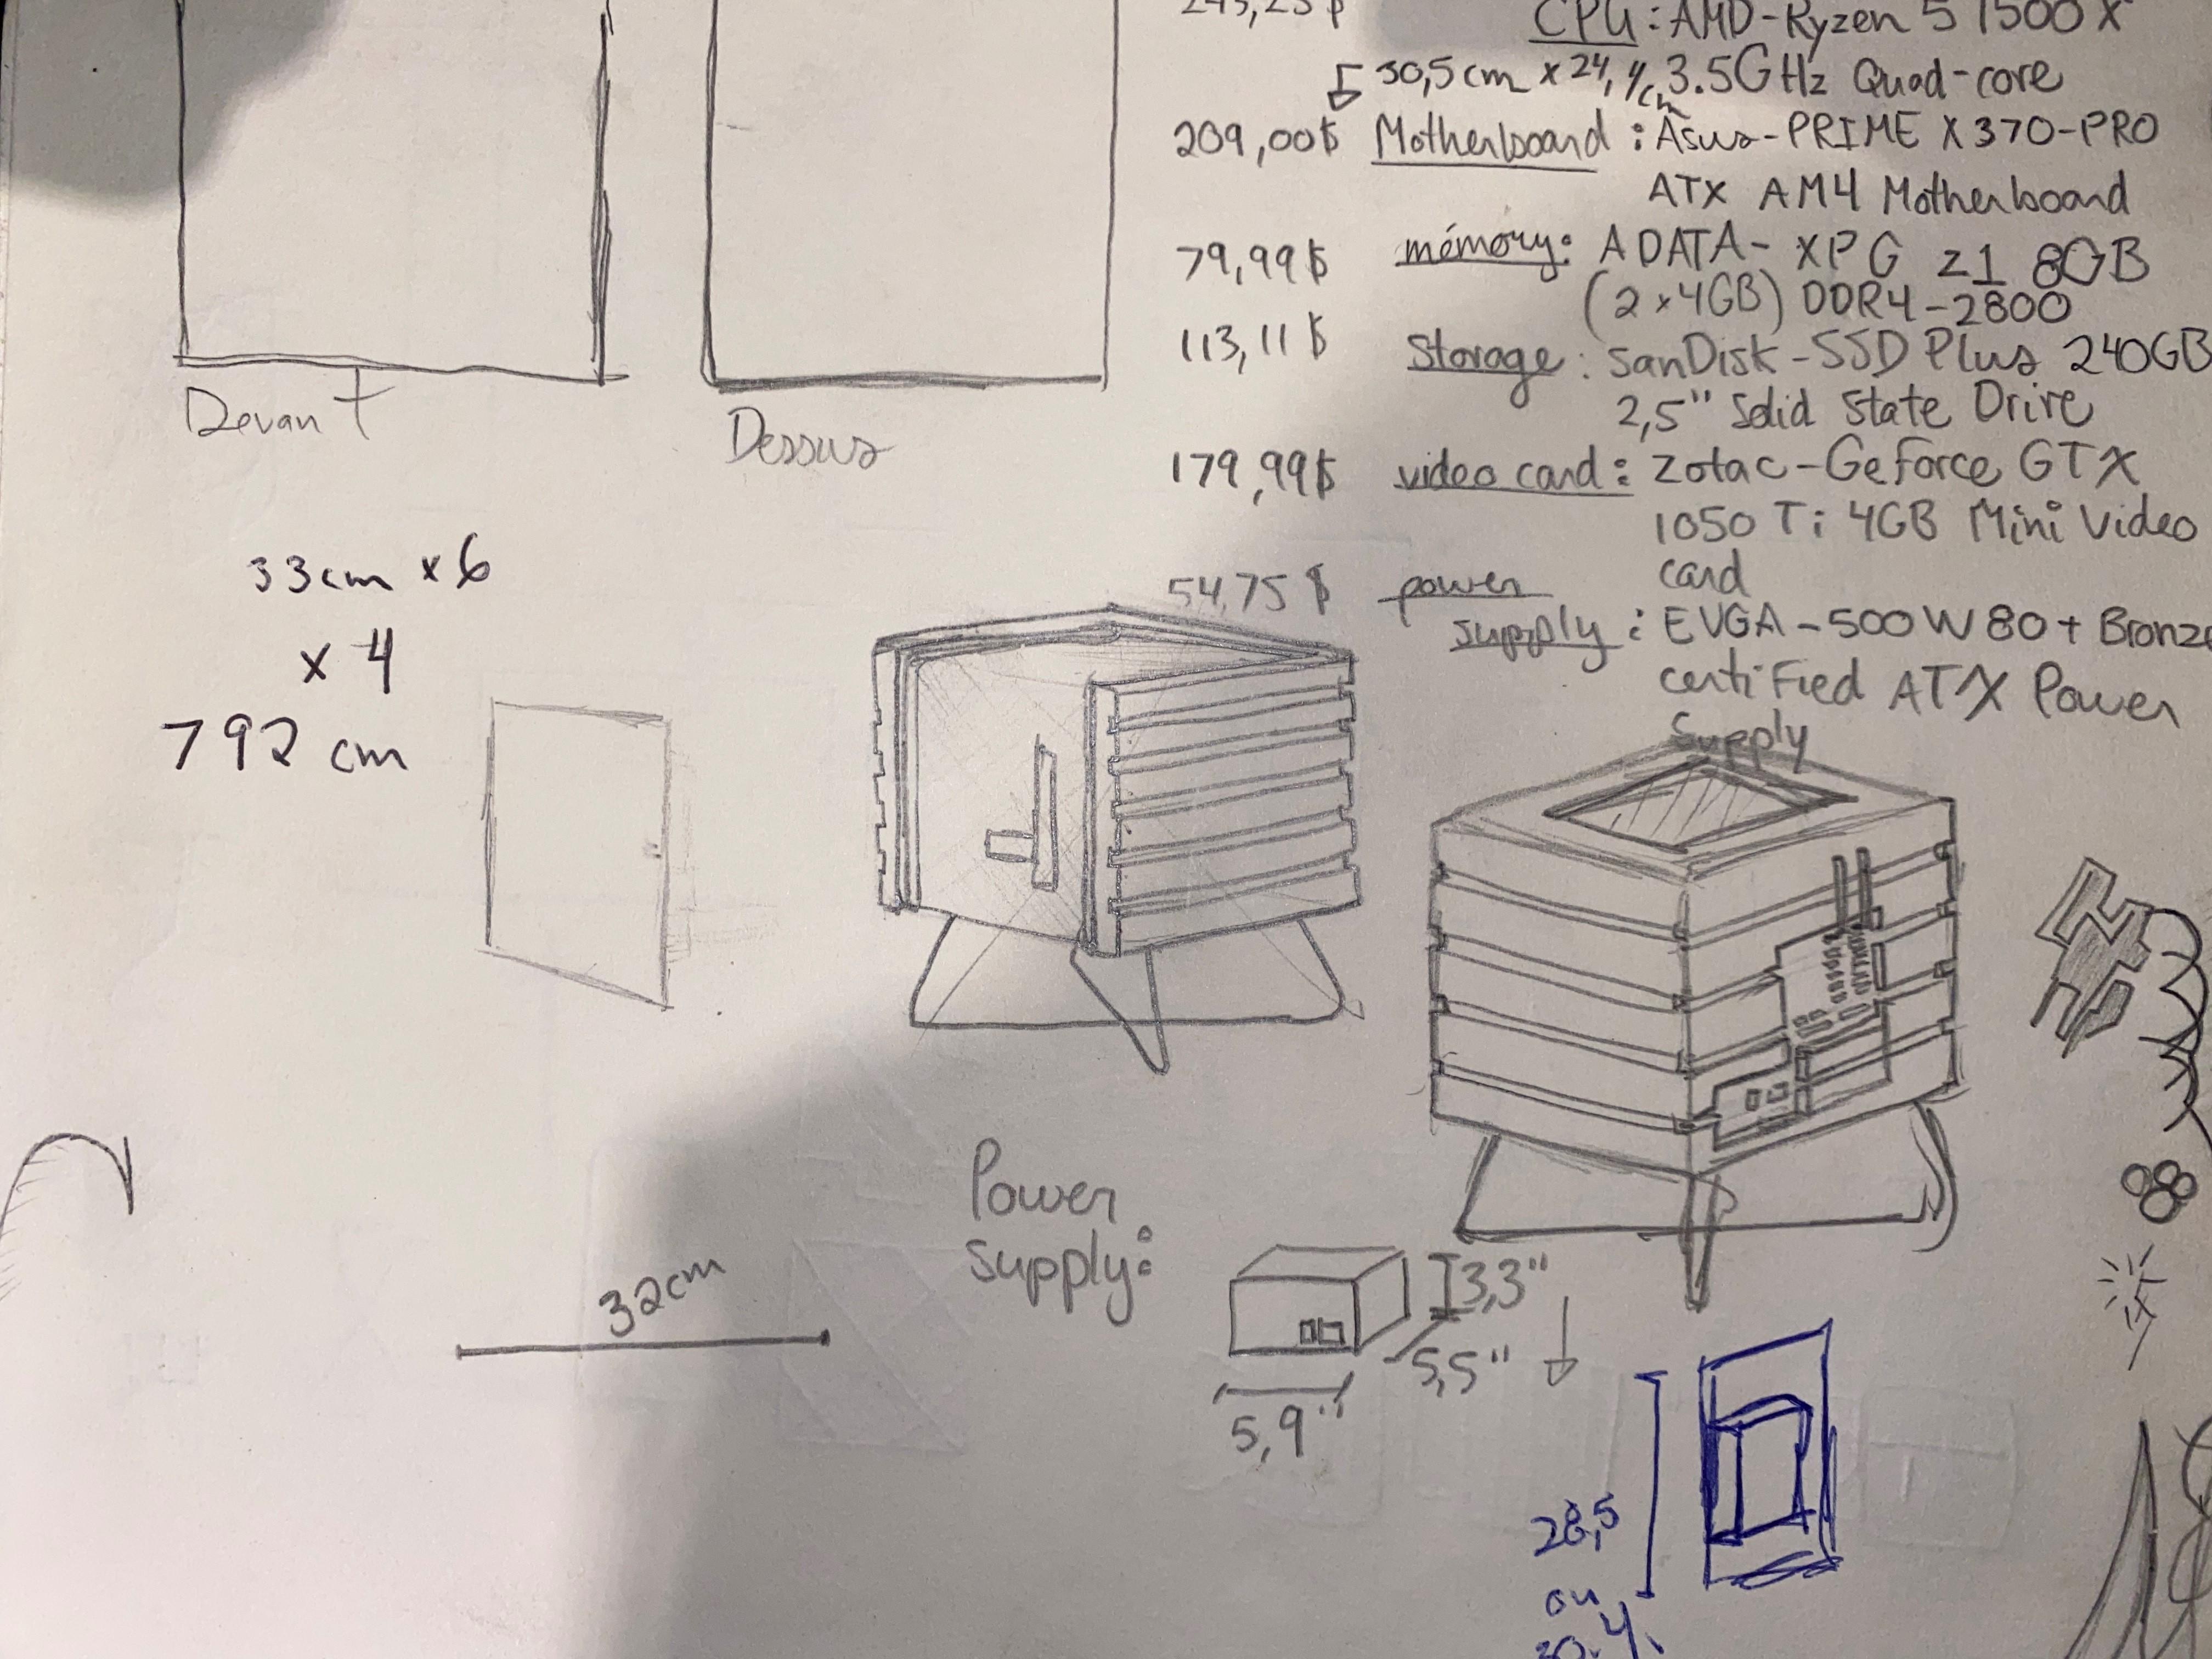 CPU : AMD-Ryzen 5 1500X
30,5cm x 24,4cm 3.5GHz Quad-core
209,00$ Motherboard : Asus-PRIME X370-PRO
ATX AM4 Motherboard
79,99$ mémory : ADATA- XPG Z1 8GB
(2 x 4GB) DDR4-2800
113,11$ Storage : SanDisk-SSD Plus 240GB
2,5" Solid State Drive
179,99$ video card : Zotac-GeForce GTX
1050 Ti 4GB Mini Video
card
54,75$ power
supply : EVGA-500W 80+ Bronze
certified ATX Power
Supply
Devant
Dessus
33cm x 6
x 4
792 cm
32cm
Power
supply:
3,3"
5,5"
5,9"
28,5
ou